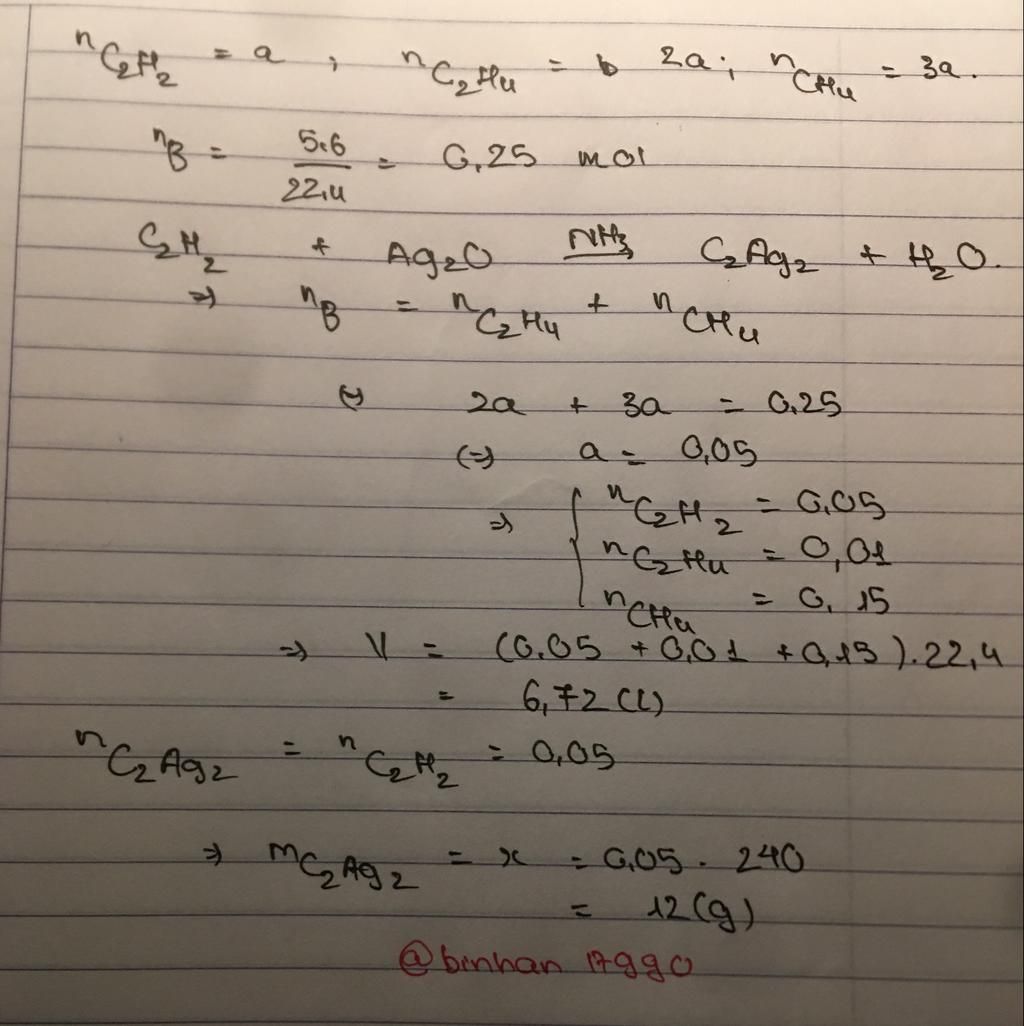 nC2H2 = a ; nC2H4 = b 2a ; nCH4 = 3a.
nB = 5.6/22,4 = 0,25 mol
C2H2 + Ag2O NH3→ C2Ag2 + H2O.
=> nB = nC2H4 + nCH4
(=) 2a + 3a = 0,25
(=) a = 0,05
=> { nC2H2 = 0,05
nC2H4 = 0,01
nCH4 = 0,15
=> V = (0,05 + 0,01 + 0,15).22,4
= 6,72 (L)
nC2Ag2 = nC2H2 = 0,05
=> mC2Ag2 = x = 0,05 . 240
= 12 (g)
@binhan 17990